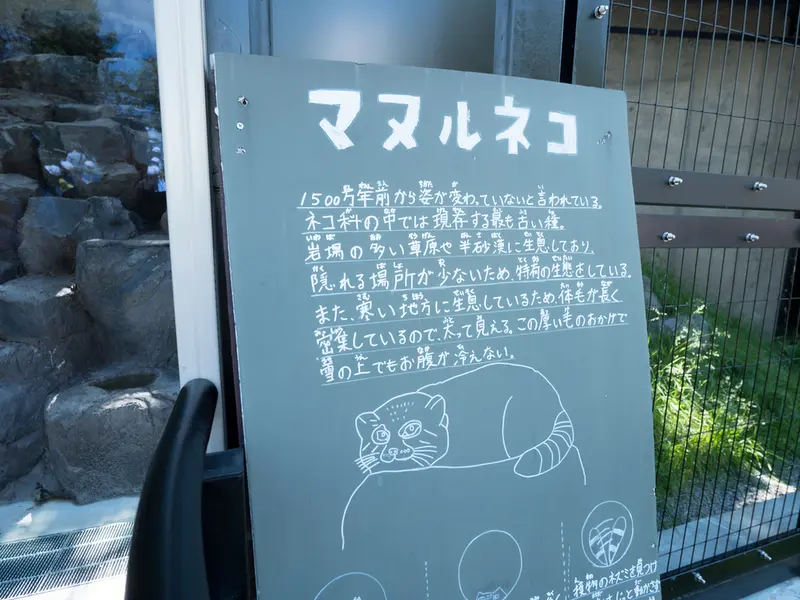 マヌルネコ
1500万年前から姿が変わっていないと言われている。
ネコ科の中では現存する最も古い種。
岩場の多い草原や半砂漠に生息しており、
隠れる場所が少ないため特有の生態をしている。
また、寒い地方に生息しているため体毛が長く
密集しているので、太って見える。この厚い毛のおかげで
雪の上でもお腹が冷えない。
植物のネズミを見つけ